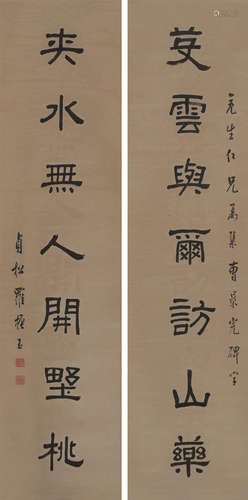 元生仁兄屬集曹景完碑字
芟雲與爾訪山藥
夾水無人開墅桃
貞松羅振玉